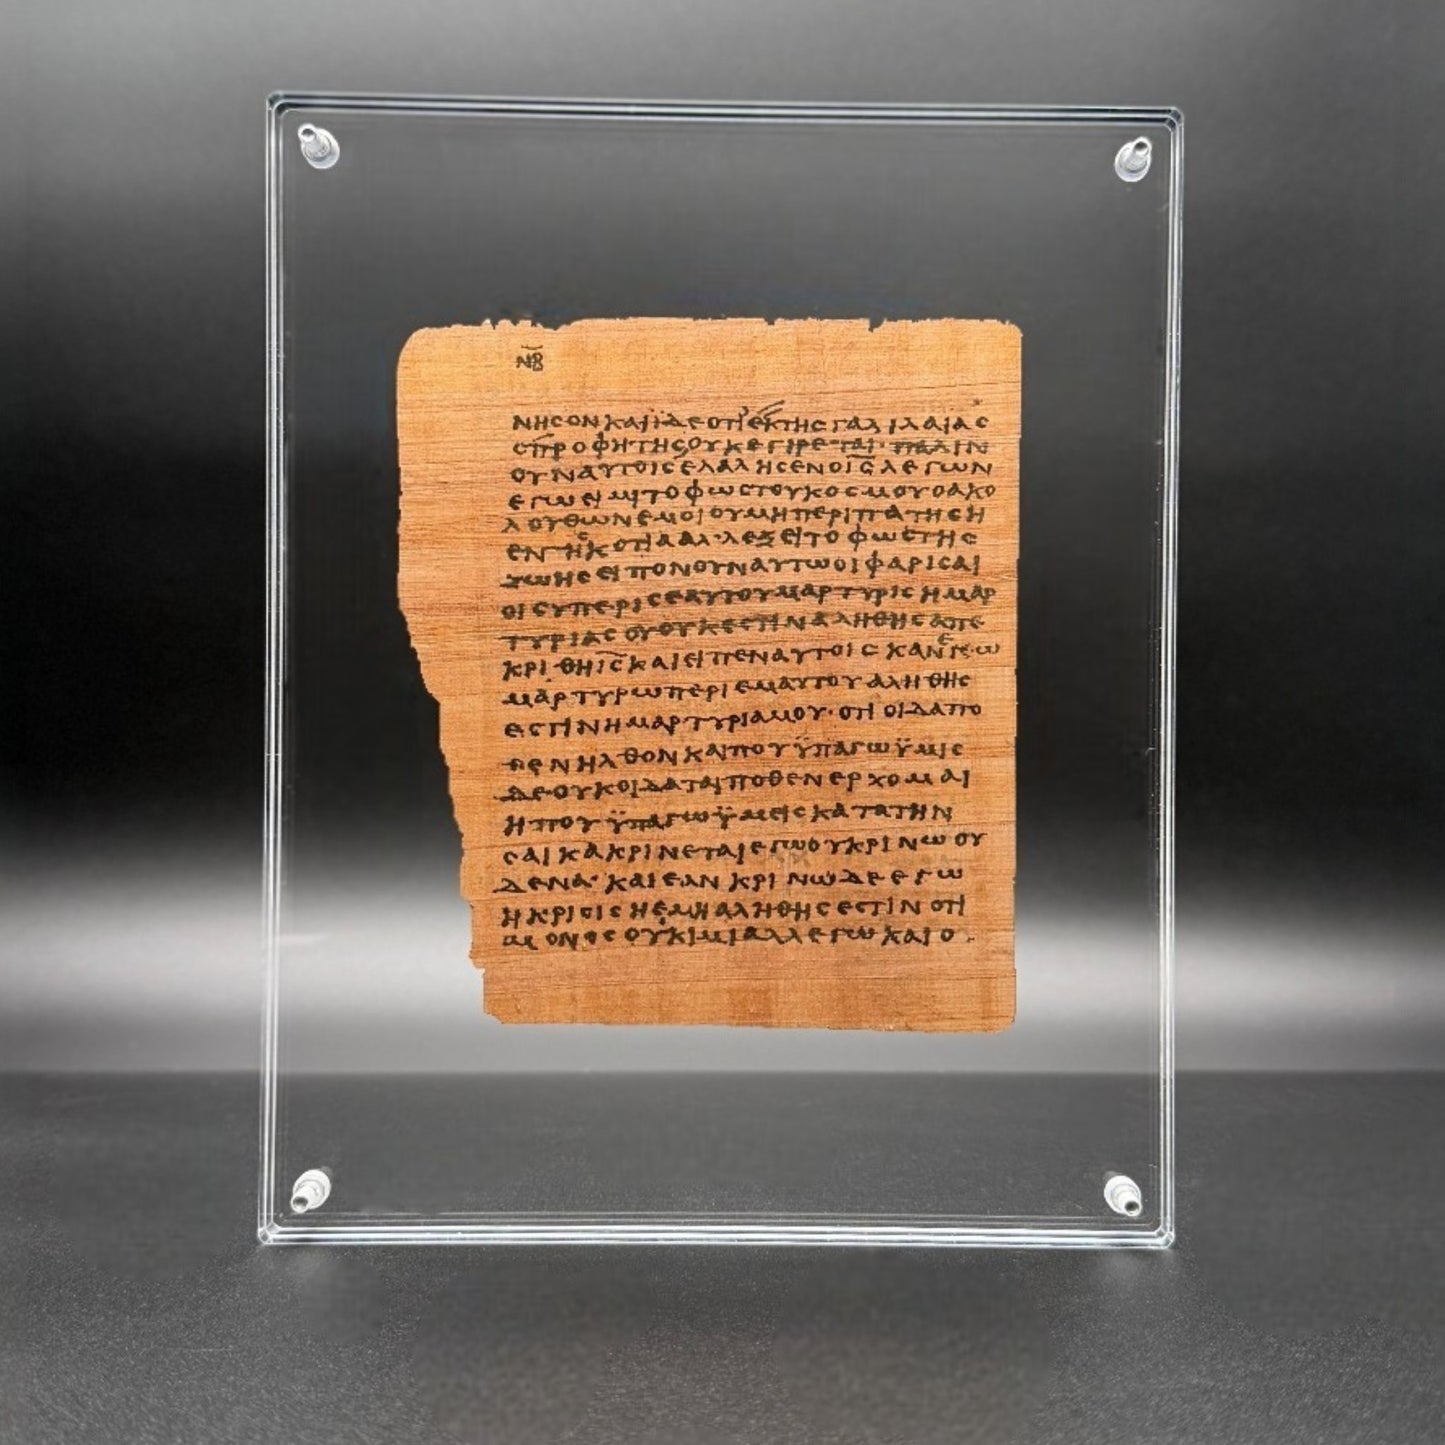 ΝΒ
ΝΗϹΟΝΚΑΙΪΔΕΟΤΙΕΚΤΗϹΓΑΛΙΛΑΙΑϹ
ΠΡΟΦΗΤΗϹΟΥΚΕΓΙΡΕΤΑΙ· ΠΑΛΙΝ
ΟΥΝΑΥΤΟΙϹΕΛΑΛΗϹΕΝΟΙϹ̅ΛΕΓΩΝ
ΕΓΩΕΙΜΙΤΟΦΩϹΤΟΥΚΟϹΜΟΥΟΑΚΟ
ΛΟΥΘΩΝΕΜΟΙΟΥΜΗΠΕΡΙΠΑΤΗϹΗ
ΕΝΤΗϹΚΟΤΙΑΑΛ·ΛΕΞΕΙΤΟΦΩϹΤΗϹ
ΖΩΗϹΕΙΠΟΝΟΥΝΑΥΤΩΟΙΦΑΡΙϹΑΙ
ΟΙϹΥΠΕΡΙϹΕΑΥΤΟΥΜΑΡΤΥΡΙϹΗΜΑΡ
ΤΥΡΙΑϹΟΥΟΥΚΕϹΤΙΝΑΛΗΘΗϹΑΠΕ
ΚΡΙΘΗΙϹ̅ΚΑΙΕΙΠΕΝΑΥΤΟΙϹ ΚΑΝΕΓΩ
ΜΑΡΤΥΡΩΠΕΡΙΕΜΑΥΤΟΥΑΛΗΘΗϹ
ΕϹΤΙΝΗΜΑΡΤΥΡΙΑΜΟΥ·ΟΤΙΟΙΔΑΠΟ
ΘΕΝΗΛΘΟΝΚΑΙΠΟΥΫΠΑΓΩΫΜΙϹ
ΔΕΟΥΚΟΙΔΑΤΑΙΠΟΘΕΝΕΡΧΟΜΑΙ
ΗΠΟΥΫΠΑΓΩΫΜΕΙϹΚΑΤΑΤΗΝ
ϹΑΙΚΑΚΡΙΝΕΤΑΙΕΓΩΟΥΚΡΙΝΩΟΥ
ΔΕΝΑ·ΚΑΙΕΑΝΚΡΙΝΩΔΕΕΓΩ
ΗΚΡΙϹΙϹΗΕΜΗΑΛΗΘΗϹΕϹΤΙΝΟΤΙ
ΜΟΝΟϹΟΥΚΙΜΙΑΛΛΕΓΩΚΑΙΟ